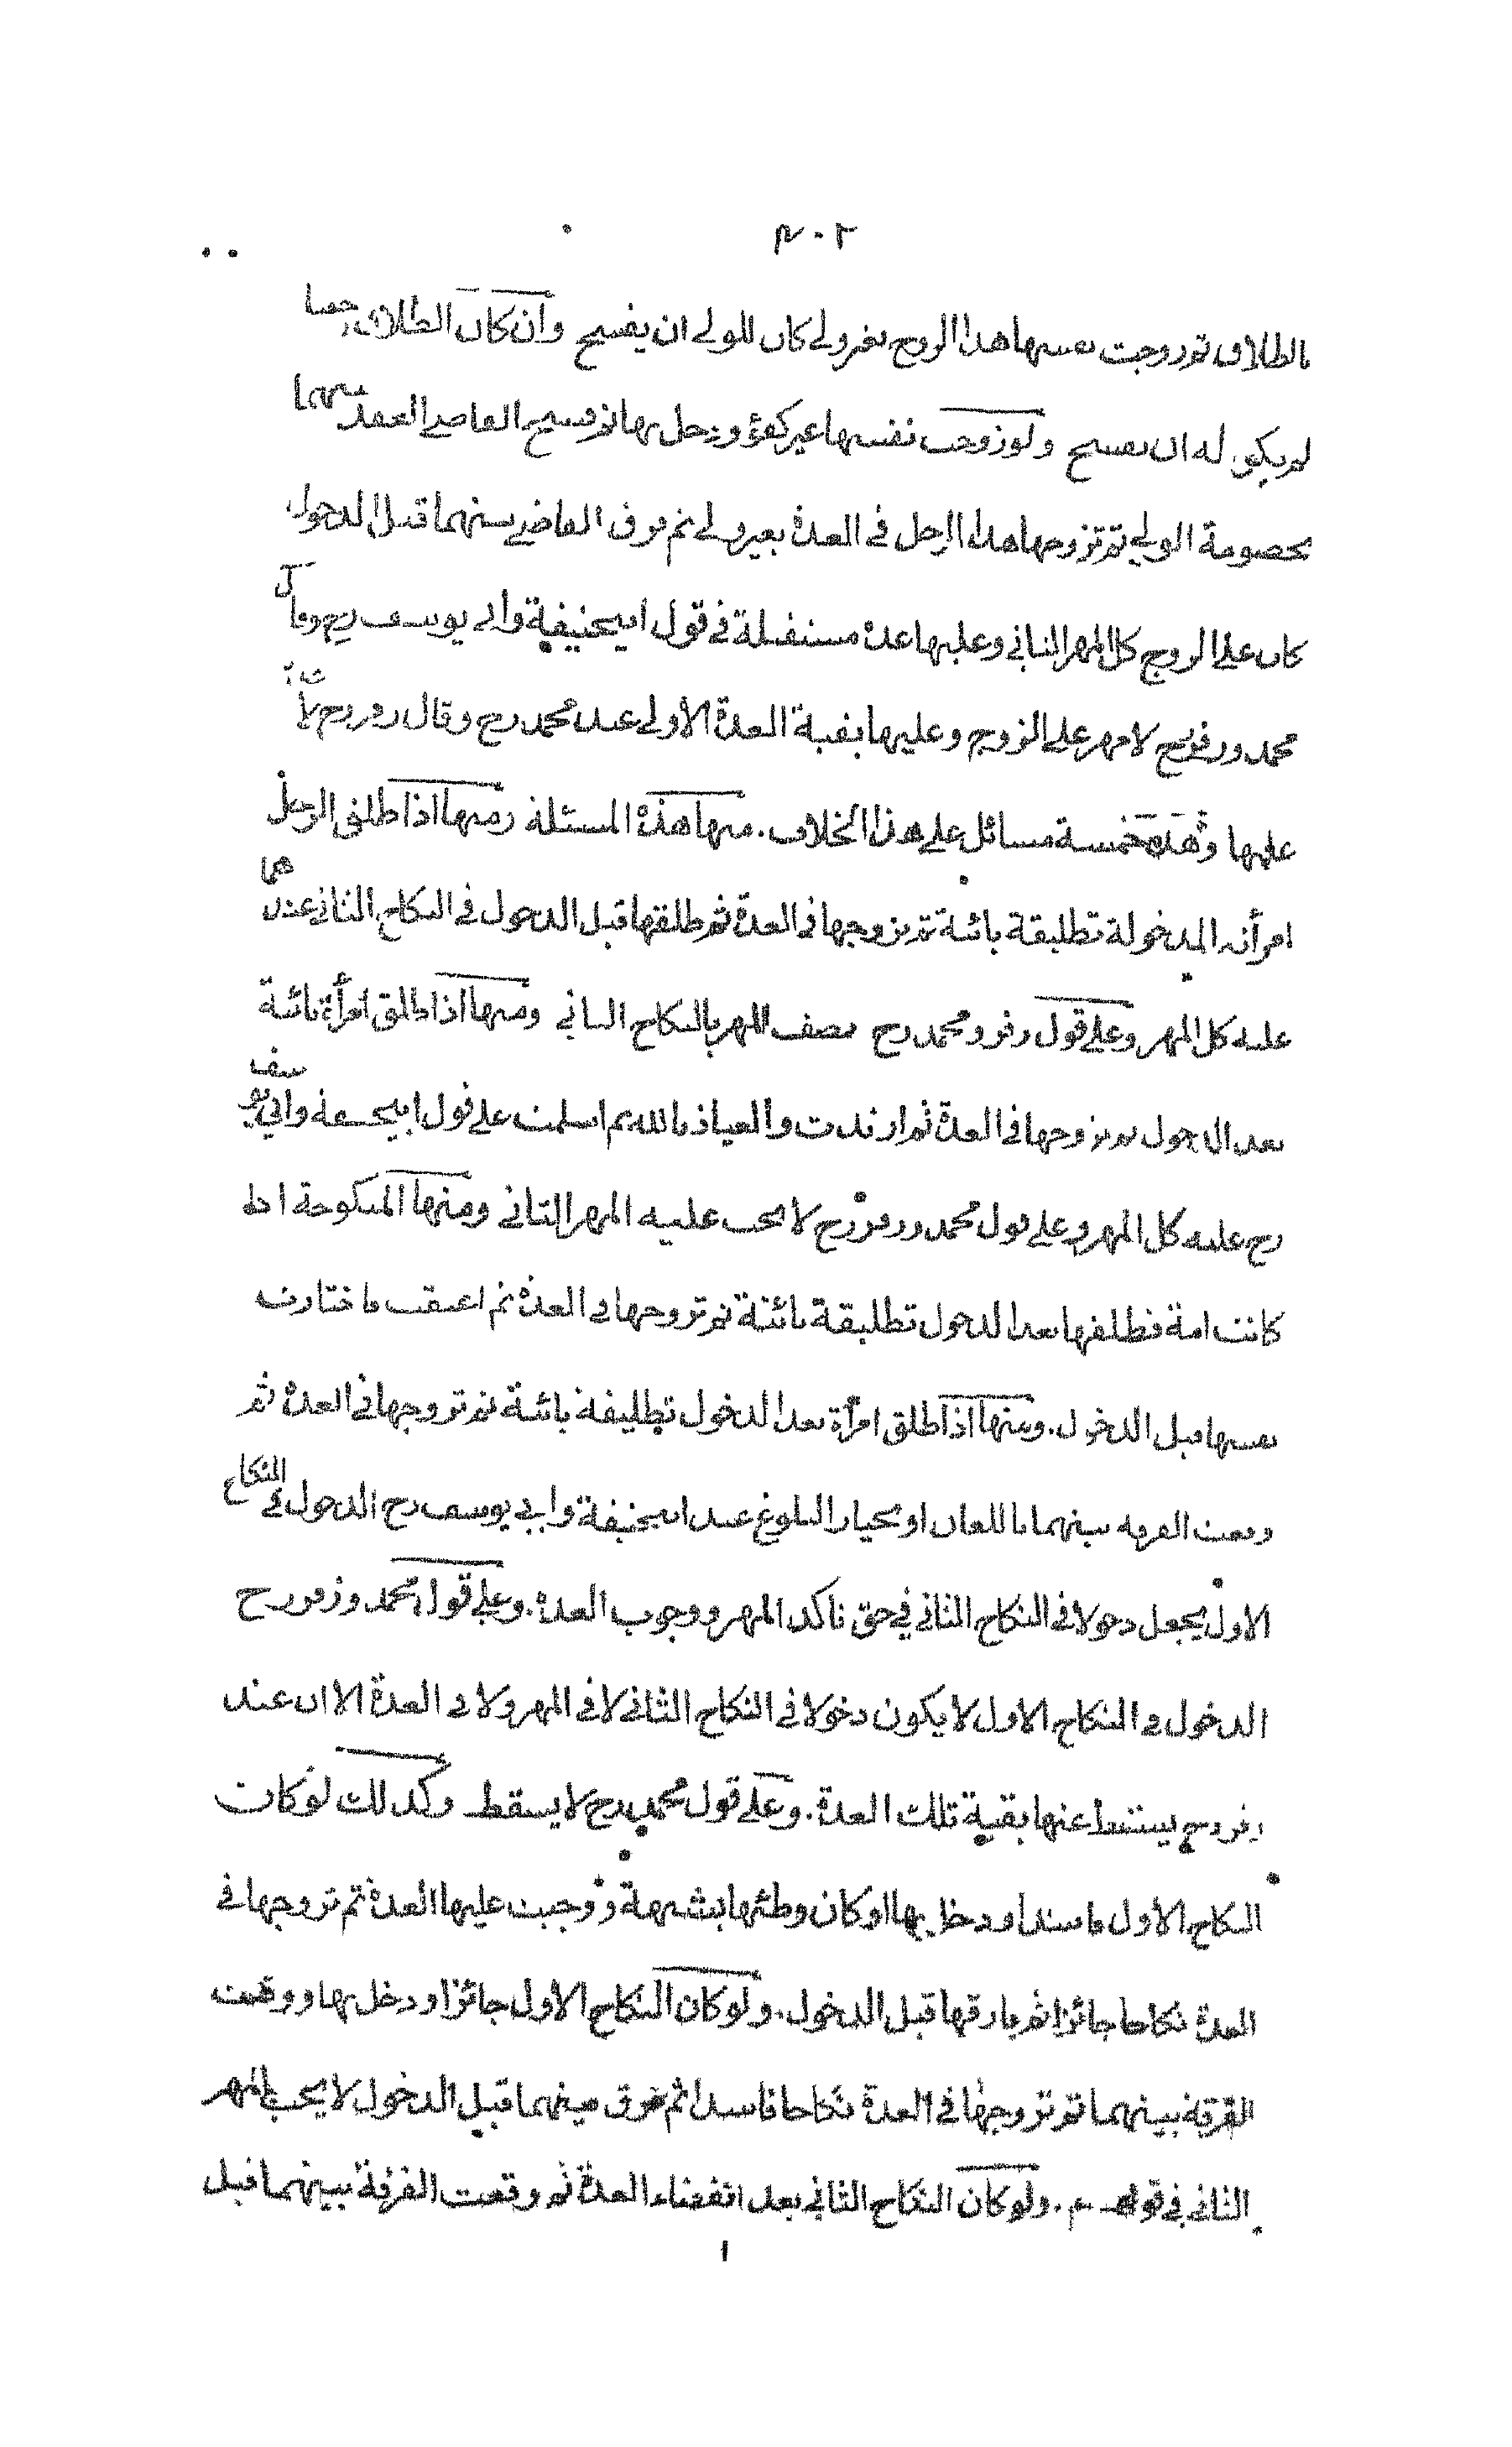 ٢٠٣
بالطلاق ثم زوجت نفسها هذا الزوج بغير ولي كان للولي ان يفسخ وان كان الطلاق رجعيا
لم يكن له ان يفسخ ولو زوجت نفسها غير كفؤ ودخل بها ثم فسخ القاضي العقد بينهما
بخصومة الولي ثم تزوجها هذا الرجل في العدة بغير ولي ثم فرق القاضي بينهما قبل الدخول
كان على الزوج كل المهر الثاني وعليها عدة مستقبلة في قول ابيحنيفة وابي يوسف رح وقال
محمد وزفر رح لا مهر على الزوج وعليها بقية العدة الاولى عند محمد رح وقال زفر رح لا عدة
عليها وهذه خمسة مسائل على هذا الخلاف. منها هذه المسئلة ومنها اذا طلق الرجل
امرأته المدخولة تطليقة بائنة ثم تزوجها في العدة ثم طلقها قبل الدخول في النكاح الثاني عندهما
عليه كل المهر وعلى قول زفر ومحمد رح نصف المهر بالنكاح الثاني ومنها اذا طلق امرأة بائنة
بعد الدخول ثم تزوجها في العدة ثم ارتدت والعياذ بالله ثم اسلمت على قول ابيحنيفة وابي يوسف
رح عليه كل المهر وعلى قول محمد وزفر رح لا يجب عليه المهر الثاني ومنها المنكوحة اذا
كانت امة فطلقها بعد الدخول تطليقة بائنة ثم تزوجها في العدة ثم اعتقت فاختارت
نفسها قبل الدخول. ومنها اذا طلق امرأة بعد الدخول تطليقة بائنة ثم تزوجها في العدة ثم
وقعت الفرقة بينهما باللعان او بخيار البلوغ عند ابيحنيفة وابي يوسف رح الدخول في النكاح
الاول يجعل دخولا في النكاح الثاني في حق تاكد المهر ووجوب العدة. وعلى قول محمد وزفر رح
الدخول في النكاح الاول لا يكون دخولا في النكاح الثاني لا في المهر ولا في العدة الا ان عند
زفر رح يسقط عنها بقية تلك العدة. وعلى قول محمد رح لا يسقط وكذلك لو كان
النكاح الاول فاسدا ودخل بها او كان وطئها بشبهة ووجبت عليها العدة ثم تزوجها في
العدة نكاحا جائزا ثم فارقها قبل الدخول. ولو كان النكاح الاول جائزا ودخل بها ووقعت
الفرقة بينهما ثم تزوجها في العدة نكاحا فاسدا ثم فرق بينهما قبل الدخول لا يجب المهر
الثاني في قولهم. ولو كان النكاح الثاني بعد انقضاء العدة ثم وقعت الفرقة بينهما قبل